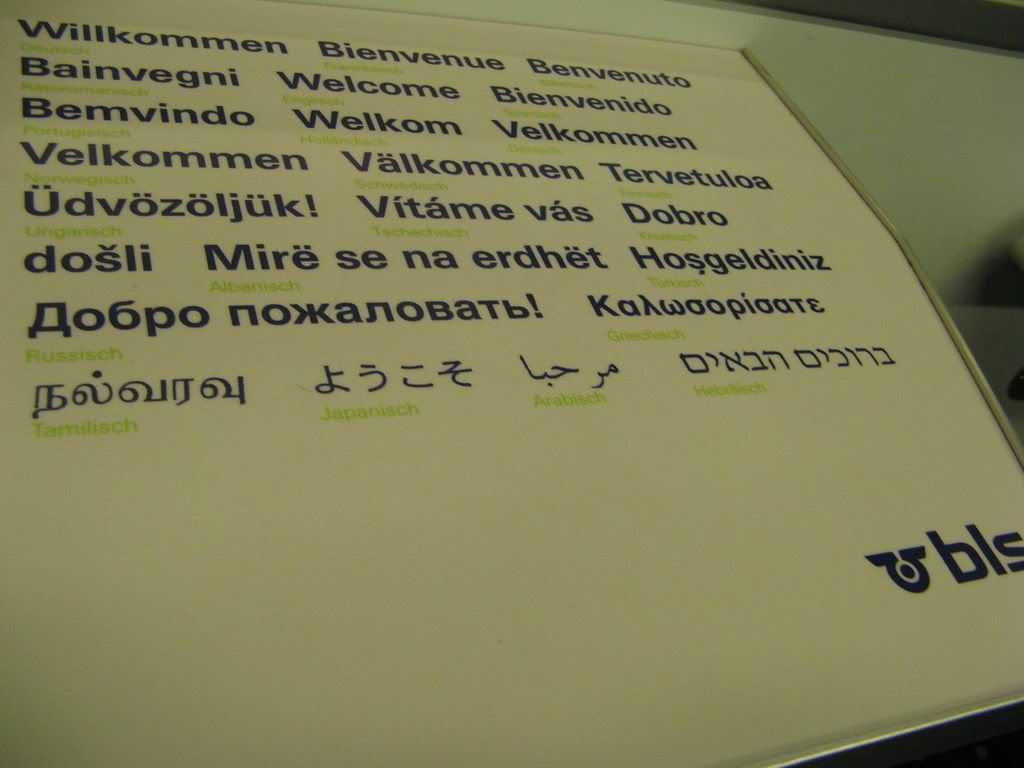 Willkommen Bienvenue Benvenuto
Deutsch Französisch Italienisch
Bainvegni Welcome Bienvenido
Rätoromanisch Englisch Spanisch
Bemvindo Welkom Velkommen
Portugisisch Holländisch Dänisch
Velkommen Välkommen Tervetuloa
Norwegisch Schwedisch Finnisch
Üdvözöljük! Vítáme vás Dobro
Ungarisch Tschechisch Kroatisch
došli Mirë se na erdhët Hoşgeldiniz
Albanisch Türkisch
Добро пожаловать! Καλωσορίσατε
Russisch Griechisch
நல்வரவு ようこそ مرحبا ברוכים הבאים
Tamilisch Japanisch Arabisch Hebräisch
bls